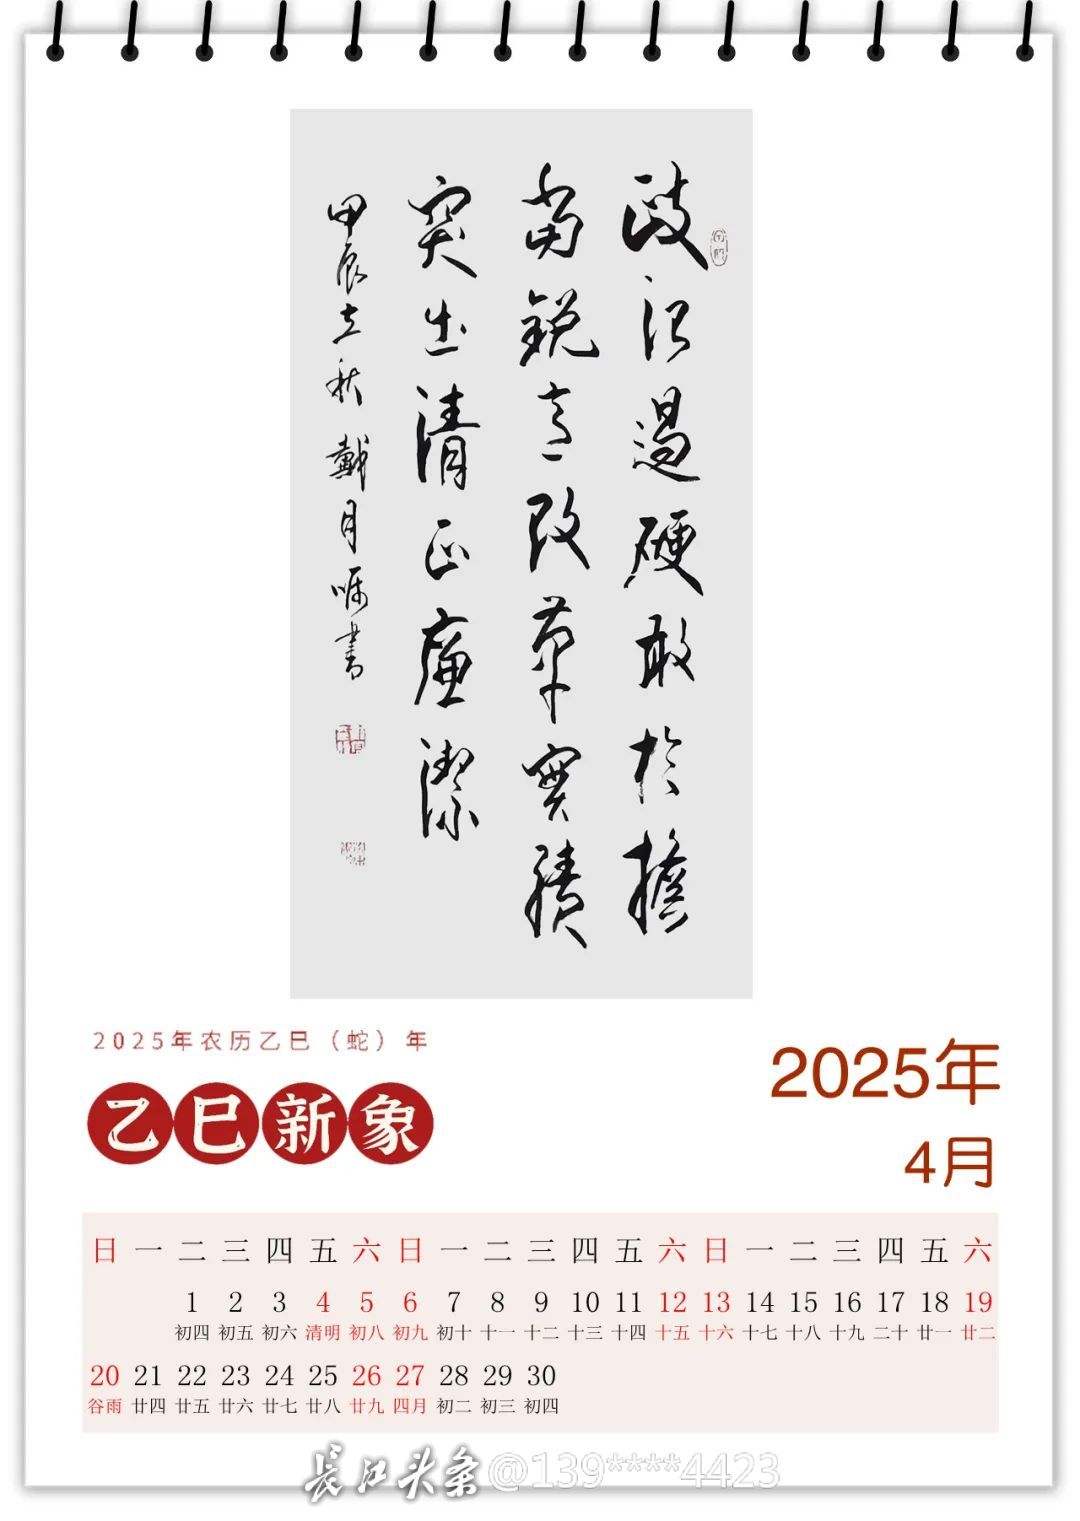 政治過硬敢於擔
當銳意改革實績
突出清正廉潔
甲辰立秋 戴月嘱書
2025年农历乙巳（蛇）年
乙巳新象
2025年
4月
日 一 二 三 四 五 六 日 一 二 三 四 五 六 日 一 二 三 四 五 六
1 2 3 4 5 6 7 8 9 10 11 12 13 14 15 16 17 18 19
初四 初五 初六 清明 初八 初九 初十 十一 十二 十三 十四 十五 十六 十七 十八 十九 二十 廿一 廿二
20 21 22 23 24 25 26 27 28 29 30
谷雨 廿四 廿五 廿六 廿七 廿八 廿九 四月 初二 初三 初四
长江头条 @139****4423